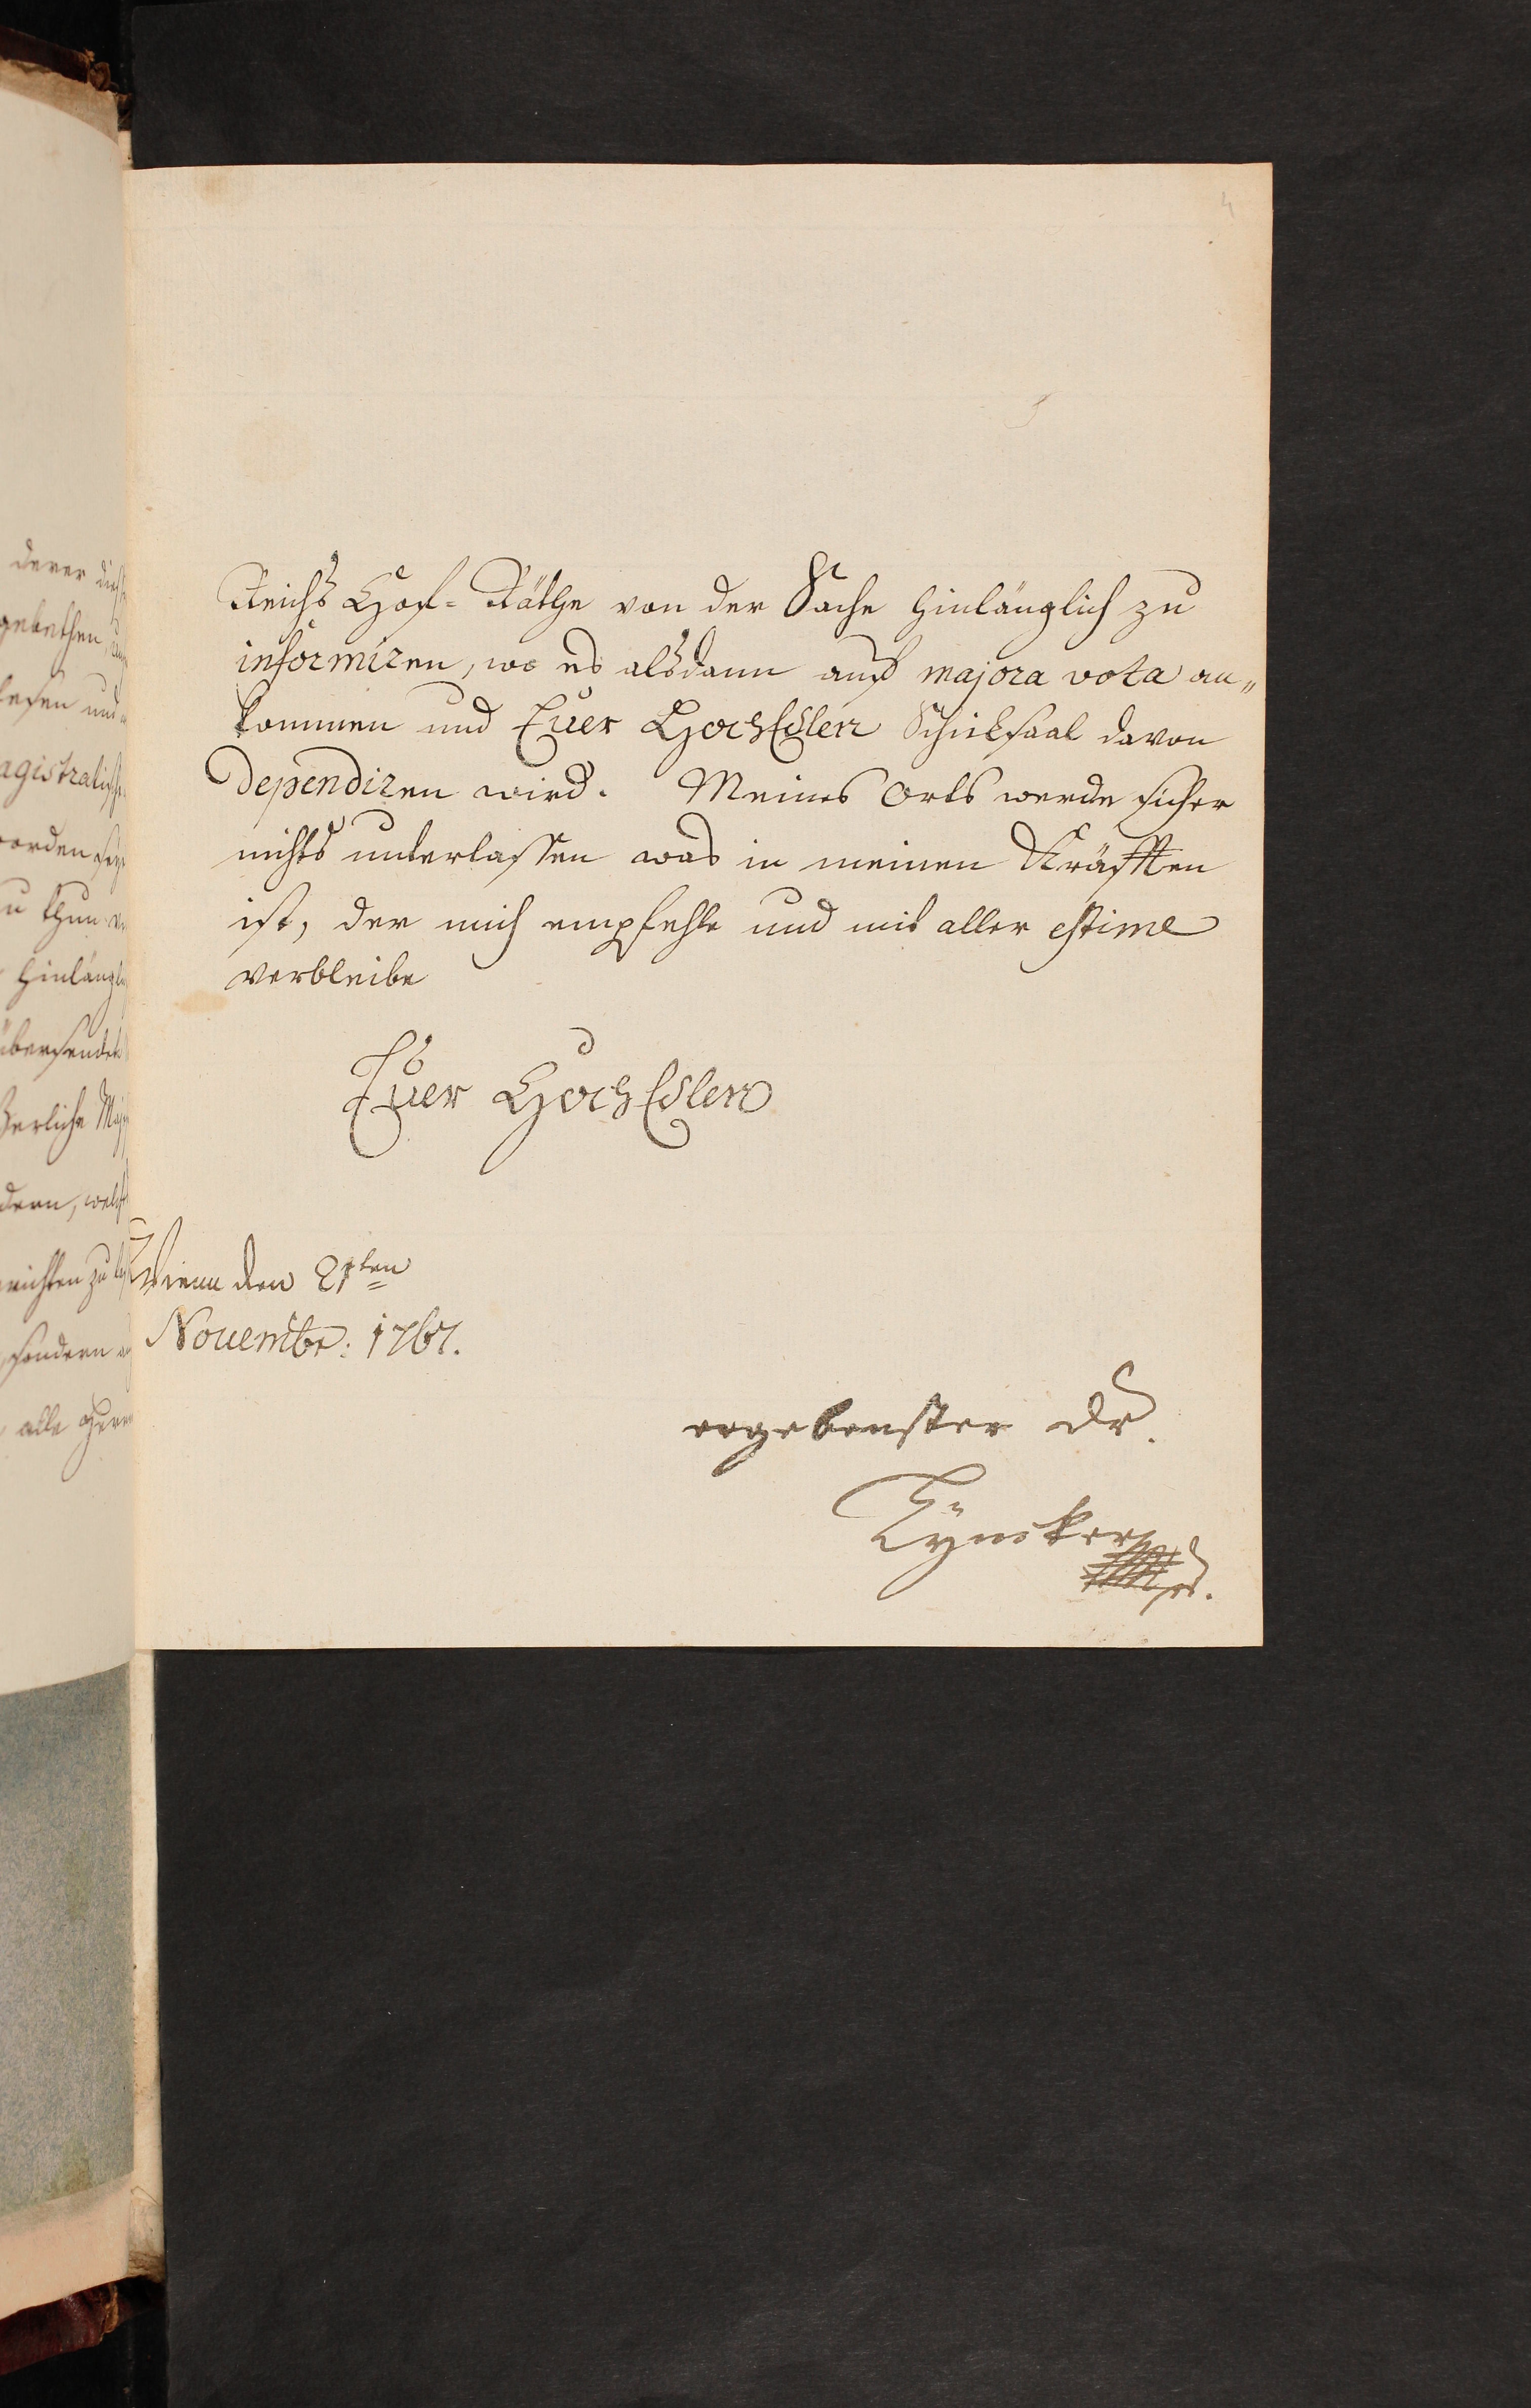 4
Reichs Hof-Räthe von der Sache hinlänglich zu
informiren, wo es alsdann auf majora vota an„
kommen und Euer HochEdlen Schicksaal davon
dependiren wird. Meines Orts werde sicher
nichts unterlassen was in meinen Kräfften
ist, der mich empfehle und mit aller estime
verbleibe
Euer HochEdlen
Wienn den 21ten
Novembr: 1767.
ergebenster Dr.